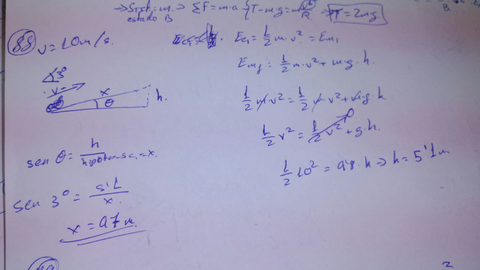 estado B
ΣF = m·a
T - mg = m v²/R
T = 2mg
B
88
v = 10 m/s.
3º
v
x
θ
h.
sen θ = h / hipotenusa = x.
sen 3º = 5'1 / x.
x = 97 m.
Ec₁ = 1/2 m·v² = Em₁
Em f = 1/2 m·v² + m·g·h.
1/2 m v² = 1/2 m v² + m g h.
1/2 v² = 1/2 v² + g·h. 0
1/2 10² = 9'8·h ⇒ h = 5'1 m
2